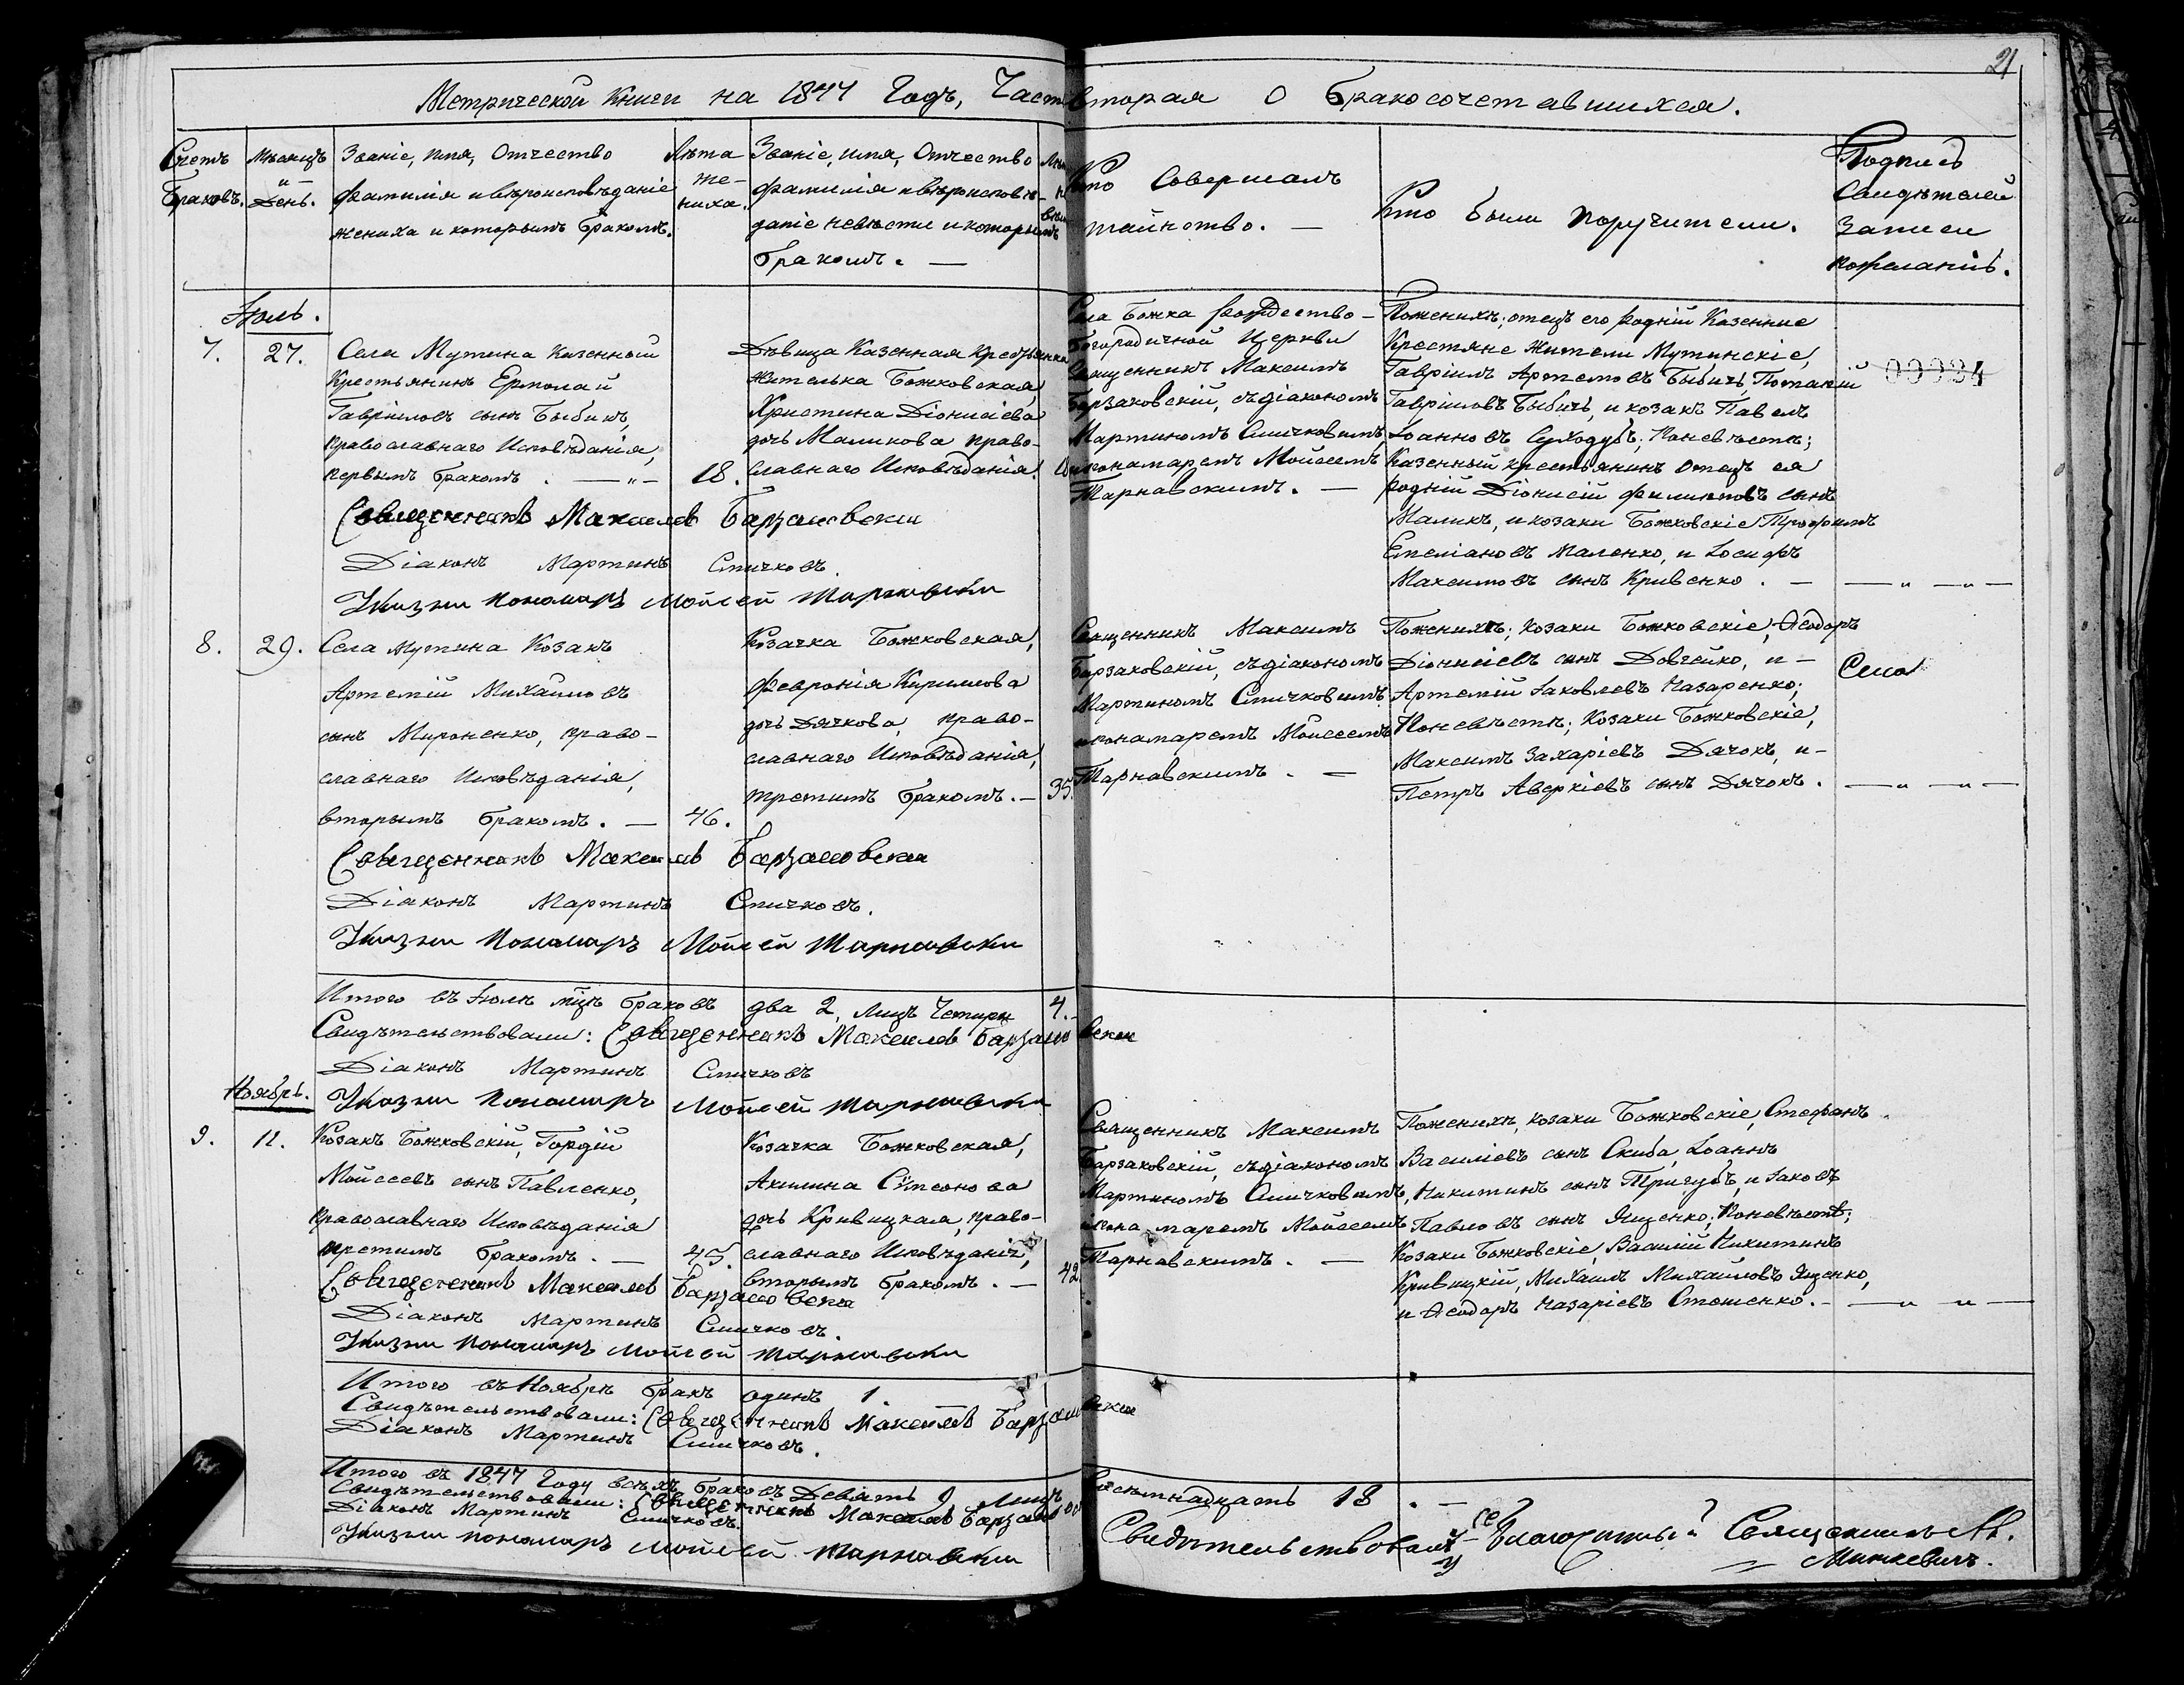 21
Метрической Книги на 1847 Годъ, Часть вторая о бракосочетавшихся.
Счетъ Браковъ.
Мѣсяцъ и День.
Званіе, имя, Отчество
фамилія и вѣроисповѣданіе
жениха и которымъ бракомъ.
Лѣта же-
ниха.
Званіе, имя, Отчество
фамилія и вѣроисповѣ-
даніе невѣсты и которымъ
бракомъ. —
Кто Совершалъ
таинство. —
Кто были поручители.
Подпись
Свидѣтелей
Записи
по желанію.
Іюль.
7. 27.
Села Мутина казенный
Крестьянинъ Ермолай
Гавріиловъ сынъ Бибикъ,
православнаго Исповѣданія,
первымъ бракомъ. — 18.
Дѣвица Казенная Крестьянка
жителька Божковская,
Христина Діонисіева
дочь Маликова право-
славнаго Исповѣданія.
Села Божка рождество-
Богородичной Церкви
Священникъ Максимъ
Барзаковскій, съ діакономъ
Мартиномъ Смичковымъ,
и понамаремъ Мойсеемъ
Тарнавскимъ. —
По женихѣ; отецъ его родній Казенние
Крестяне жители Мутинскіе,
Гавріилъ Артемовъ Бибичъ, Потапій
Гавріиловъ Бибичъ, и козакъ Павелъ
Іоанновъ Суходубъ; по невѣстѣ;
Казенный крестьянинъ отецъ ея
родній Діонисій Филиповъ сынъ
Маликъ, и козаки Божковскіе Трофимъ
Емеліановъ Маленко, и Іосифъ
Максимовъ сынъ Кривенко. —
00984
Священникъ Максимъ Барзаковски
Діаконъ Мартинъ Смичковъ.
Указни пономарь Мойсей Тарнавски
8. 29.
Села Мутина Козакъ
Артемій Михайловъ
сынъ Мироненко, право-
славнаго Исповѣданія,
вторымъ бракомъ. — 46.
Козачка Божковская,
Февронія Кирилова
дочь Дячкова, право-
славнаго Исповѣданія,
третимъ бракомъ. — 35.
Священникъ Максимъ
Барзаковскій, съ діакономъ
Мартиномъ Смичковымъ
и понамаремъ Мойсеемъ
Тарнавскимъ. —
По женихѣ; козаки Божковскіе, Ѳеодоръ
Діонисіевъ сынъ Довгейко, и —
Артемій Іаковлевъ Назаренко;
По невѣстѣ; Козаки Божковскіе,
Максимъ Захаріевъ Дячокъ, и —
Петръ Аверкіевъ сынъ Дячокъ.
Священникъ Максимъ Барзаковски
Діаконъ Мартинъ Смичковъ.
Указни пономарь Мойсей Тарнавски
Итого въ Іюлѣ мцѣ браковъ два 2, лицъ Четыри 4.
Свидѣтельствовали: Священникъ Максимъ Барзаковски
Діаконъ Мартинъ Смичковъ
Указни пономарь Мойсей Тарнавски
Ноябрь.
9. 12.
Козакъ Божковскій, Гордій
Мойсеевъ сынъ Павленко,
православнаго Исповѣданія
третимъ бракомъ. — 45.
Козачка Божковская,
Акилина Сімеонова
дочь Кривицкая, право-
славнаго Исповѣданія,
вторымъ бракомъ. — 42.
Священникъ Максимъ
Барзаковскій, съ діакономъ
Мартиномъ Смичковымъ,
и понамаремъ Мойсеемъ
Тарнавскимъ. —
По женихѣ, козаки Божковскіе, Стефанъ
Василіевъ сынъ Скиба, Іоаннъ
Никитинъ сынъ Тригубъ, и Іаковъ
Павловъ сынъ Яценко; По невѣстѣ;
Козаки Божковскіе, Василій Никитинъ
Кривицкій, Михаилъ Михайловъ Яценко,
и Ѳеодоръ Назаріевъ Стошенко. —
Священникъ Максимъ Барзаковски
Діаконъ Мартинъ Смичковъ.
Указни пономарь Мойсей Тарнавски
Итого въ Ноябрѣ бракъ одинъ 1.
Свидѣтельствовали: Священникъ Максимъ Барзаковски
Діаконъ Мартинъ Смичковъ.
Итого въ 1847 Году всѣхъ браковъ Девять 9 Лицъ Восемнадцать 18. —
Свидѣтельствовали: Священникъ Максимъ Барзаковски
Діаконъ Мартинъ Смичковъ.
Указни пономарь Мойсей Тарнавски
Свидѣтельствовалъ Благочинный Священникъ
Минкевичъ.